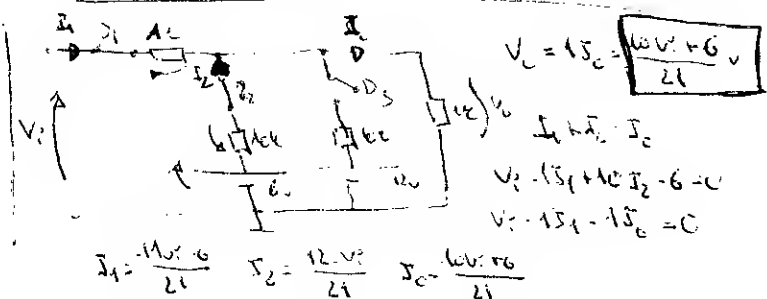 I₁ D₁ 1k I_c
I₂ D₃
Vi 10k 1k
6v 12v
V_c = 1 I_c = (10Vi + 6)/21 v
I₁ + I₂ = I_c
Vi - 1I₁ + 10 I₂ - 6 = 0
Vi - 1I₁ - 1I_c = 0
I₁ = (11Vi - 6)/21 I₂ = (12 - Vi)/21 I_c = (10Vi + 6)/21